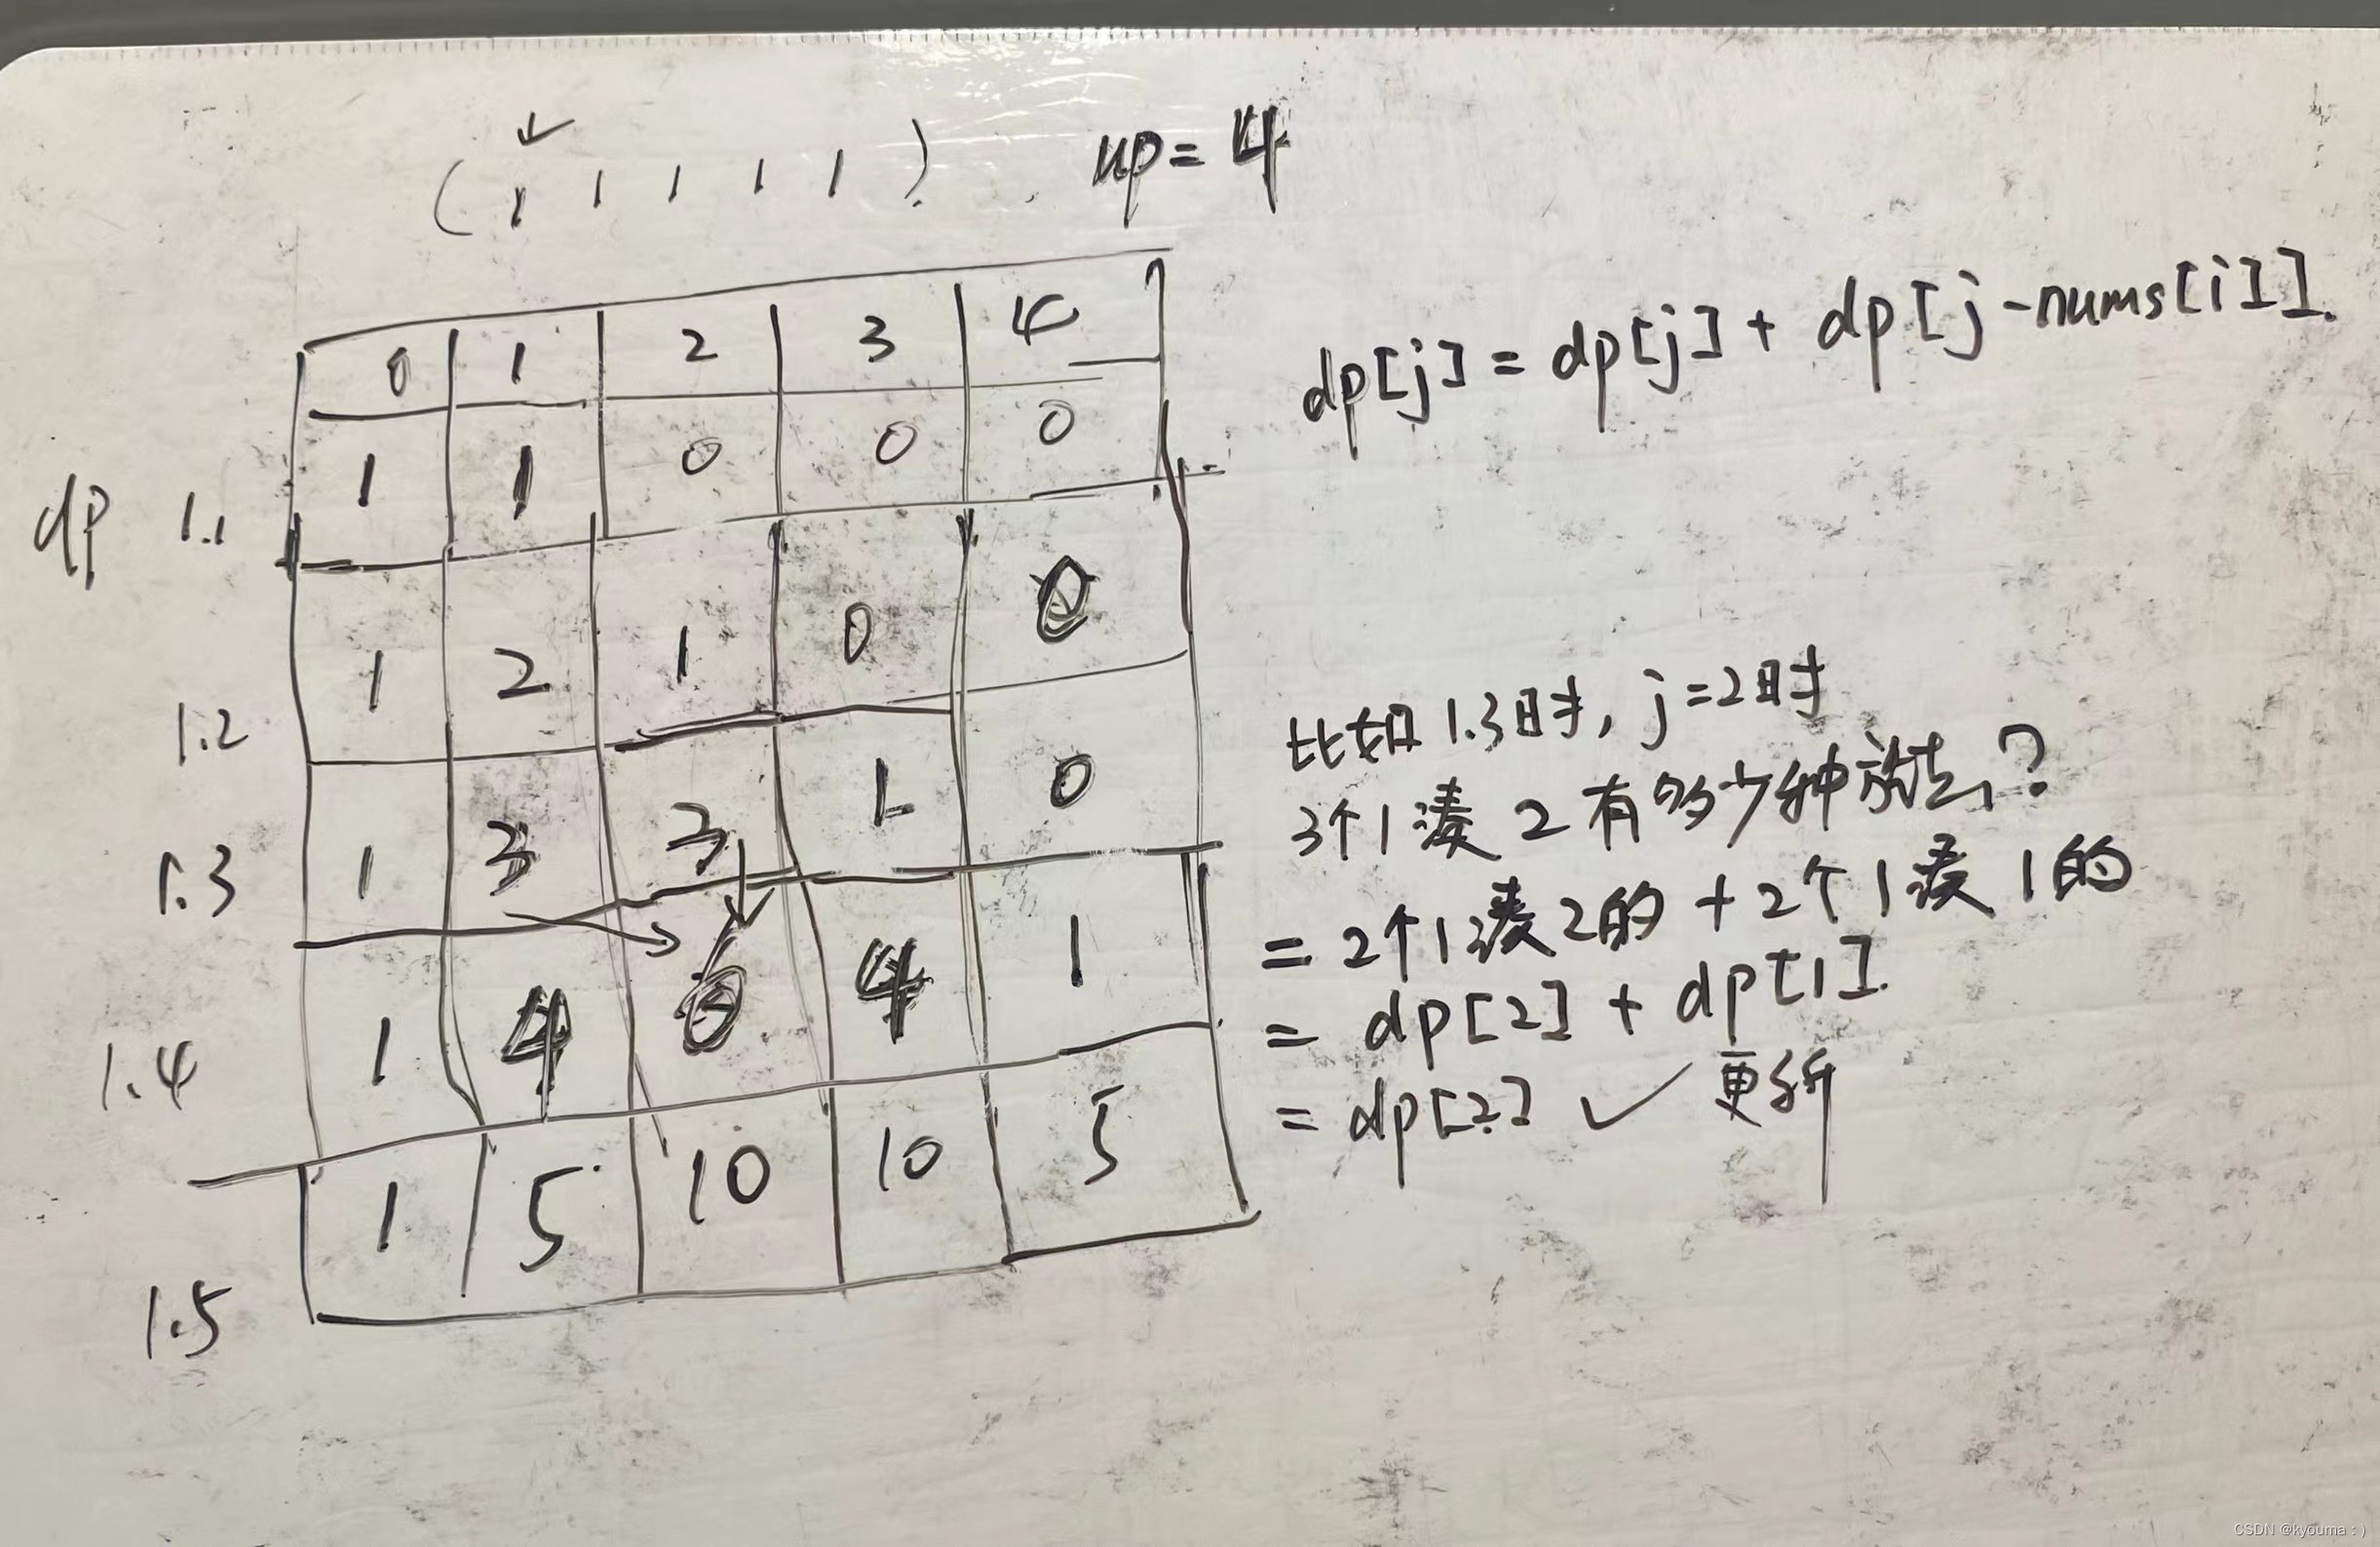 ( 1 1 1 1 1 ) up = 4
0 1 2 3 4
dp 1.1 1 1 0 0 0
1.2 1 2 1 0 0
1.3 1 3 3 1 0
1.4 1 4 6 4 1
1.5 1 5 10 10 5
dp[j] = dp[j] + dp[j-nums[i]].
比如1.3时, j=2时
3个1凑2有多少种放法?
= 2个1凑2的 + 2个1凑1的
= dp[2] + dp[1]
= dp[2] ✓ 更新
CSDN @kyouma : )